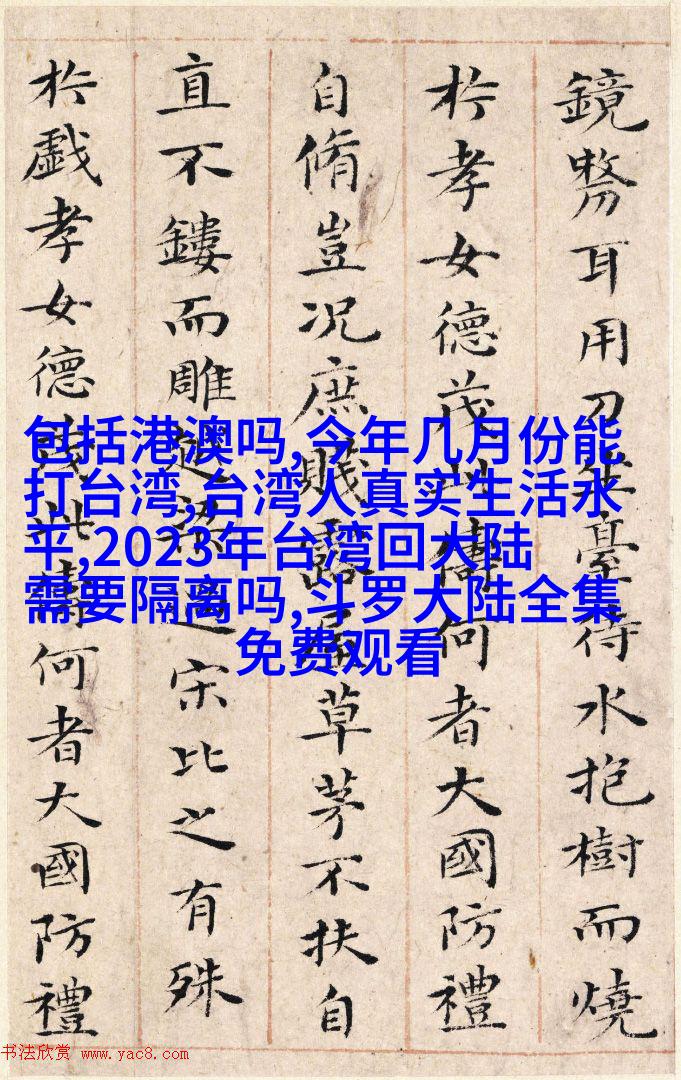 鏡剺耳用刀坐臺待水抱樹而燒
扵孝女德茂此儔何者大國防禮
自脩豈況庶賤露屋草茅不扶自
直不鏤而雕越梁過宋比之有殊
扵戲孝女德茂此儔何者大國防禮
包括港澳吗,今年几月份能
打台湾,台湾人真实生活水
平,2023年台湾回大陆
需要隔离吗,斗罗大陆全集
免费观看
书法欣赏 www.yac8.com